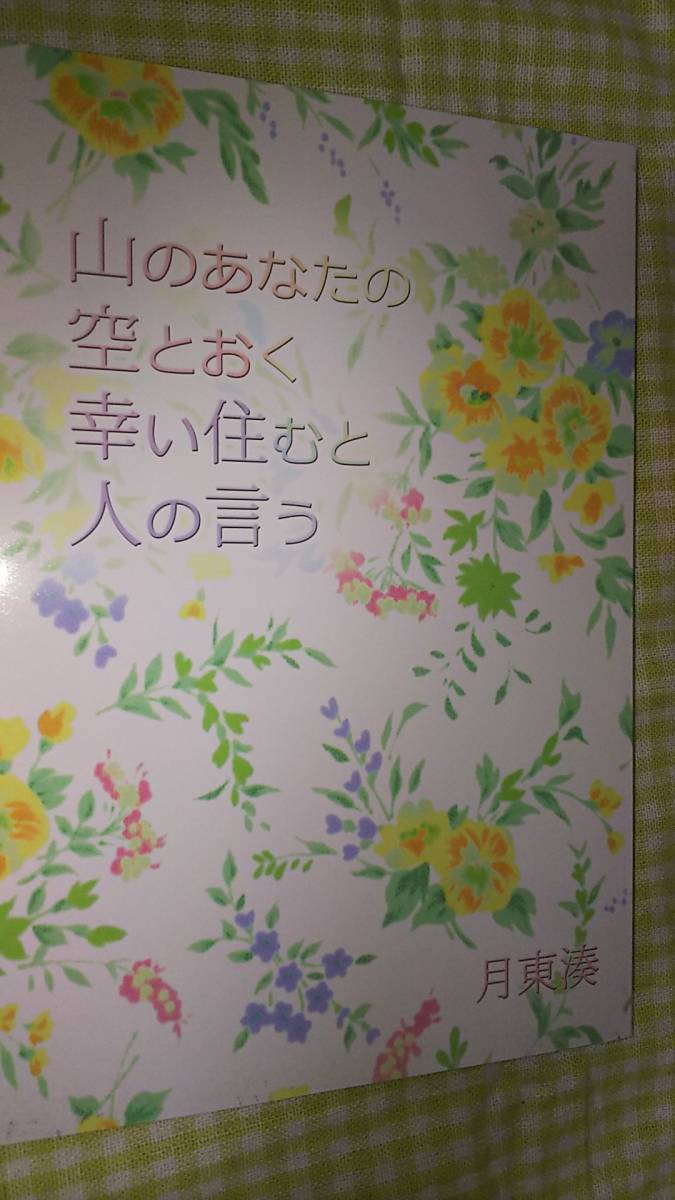 山のあなたの
空とおく
幸い住むと
人の言う
月東湊